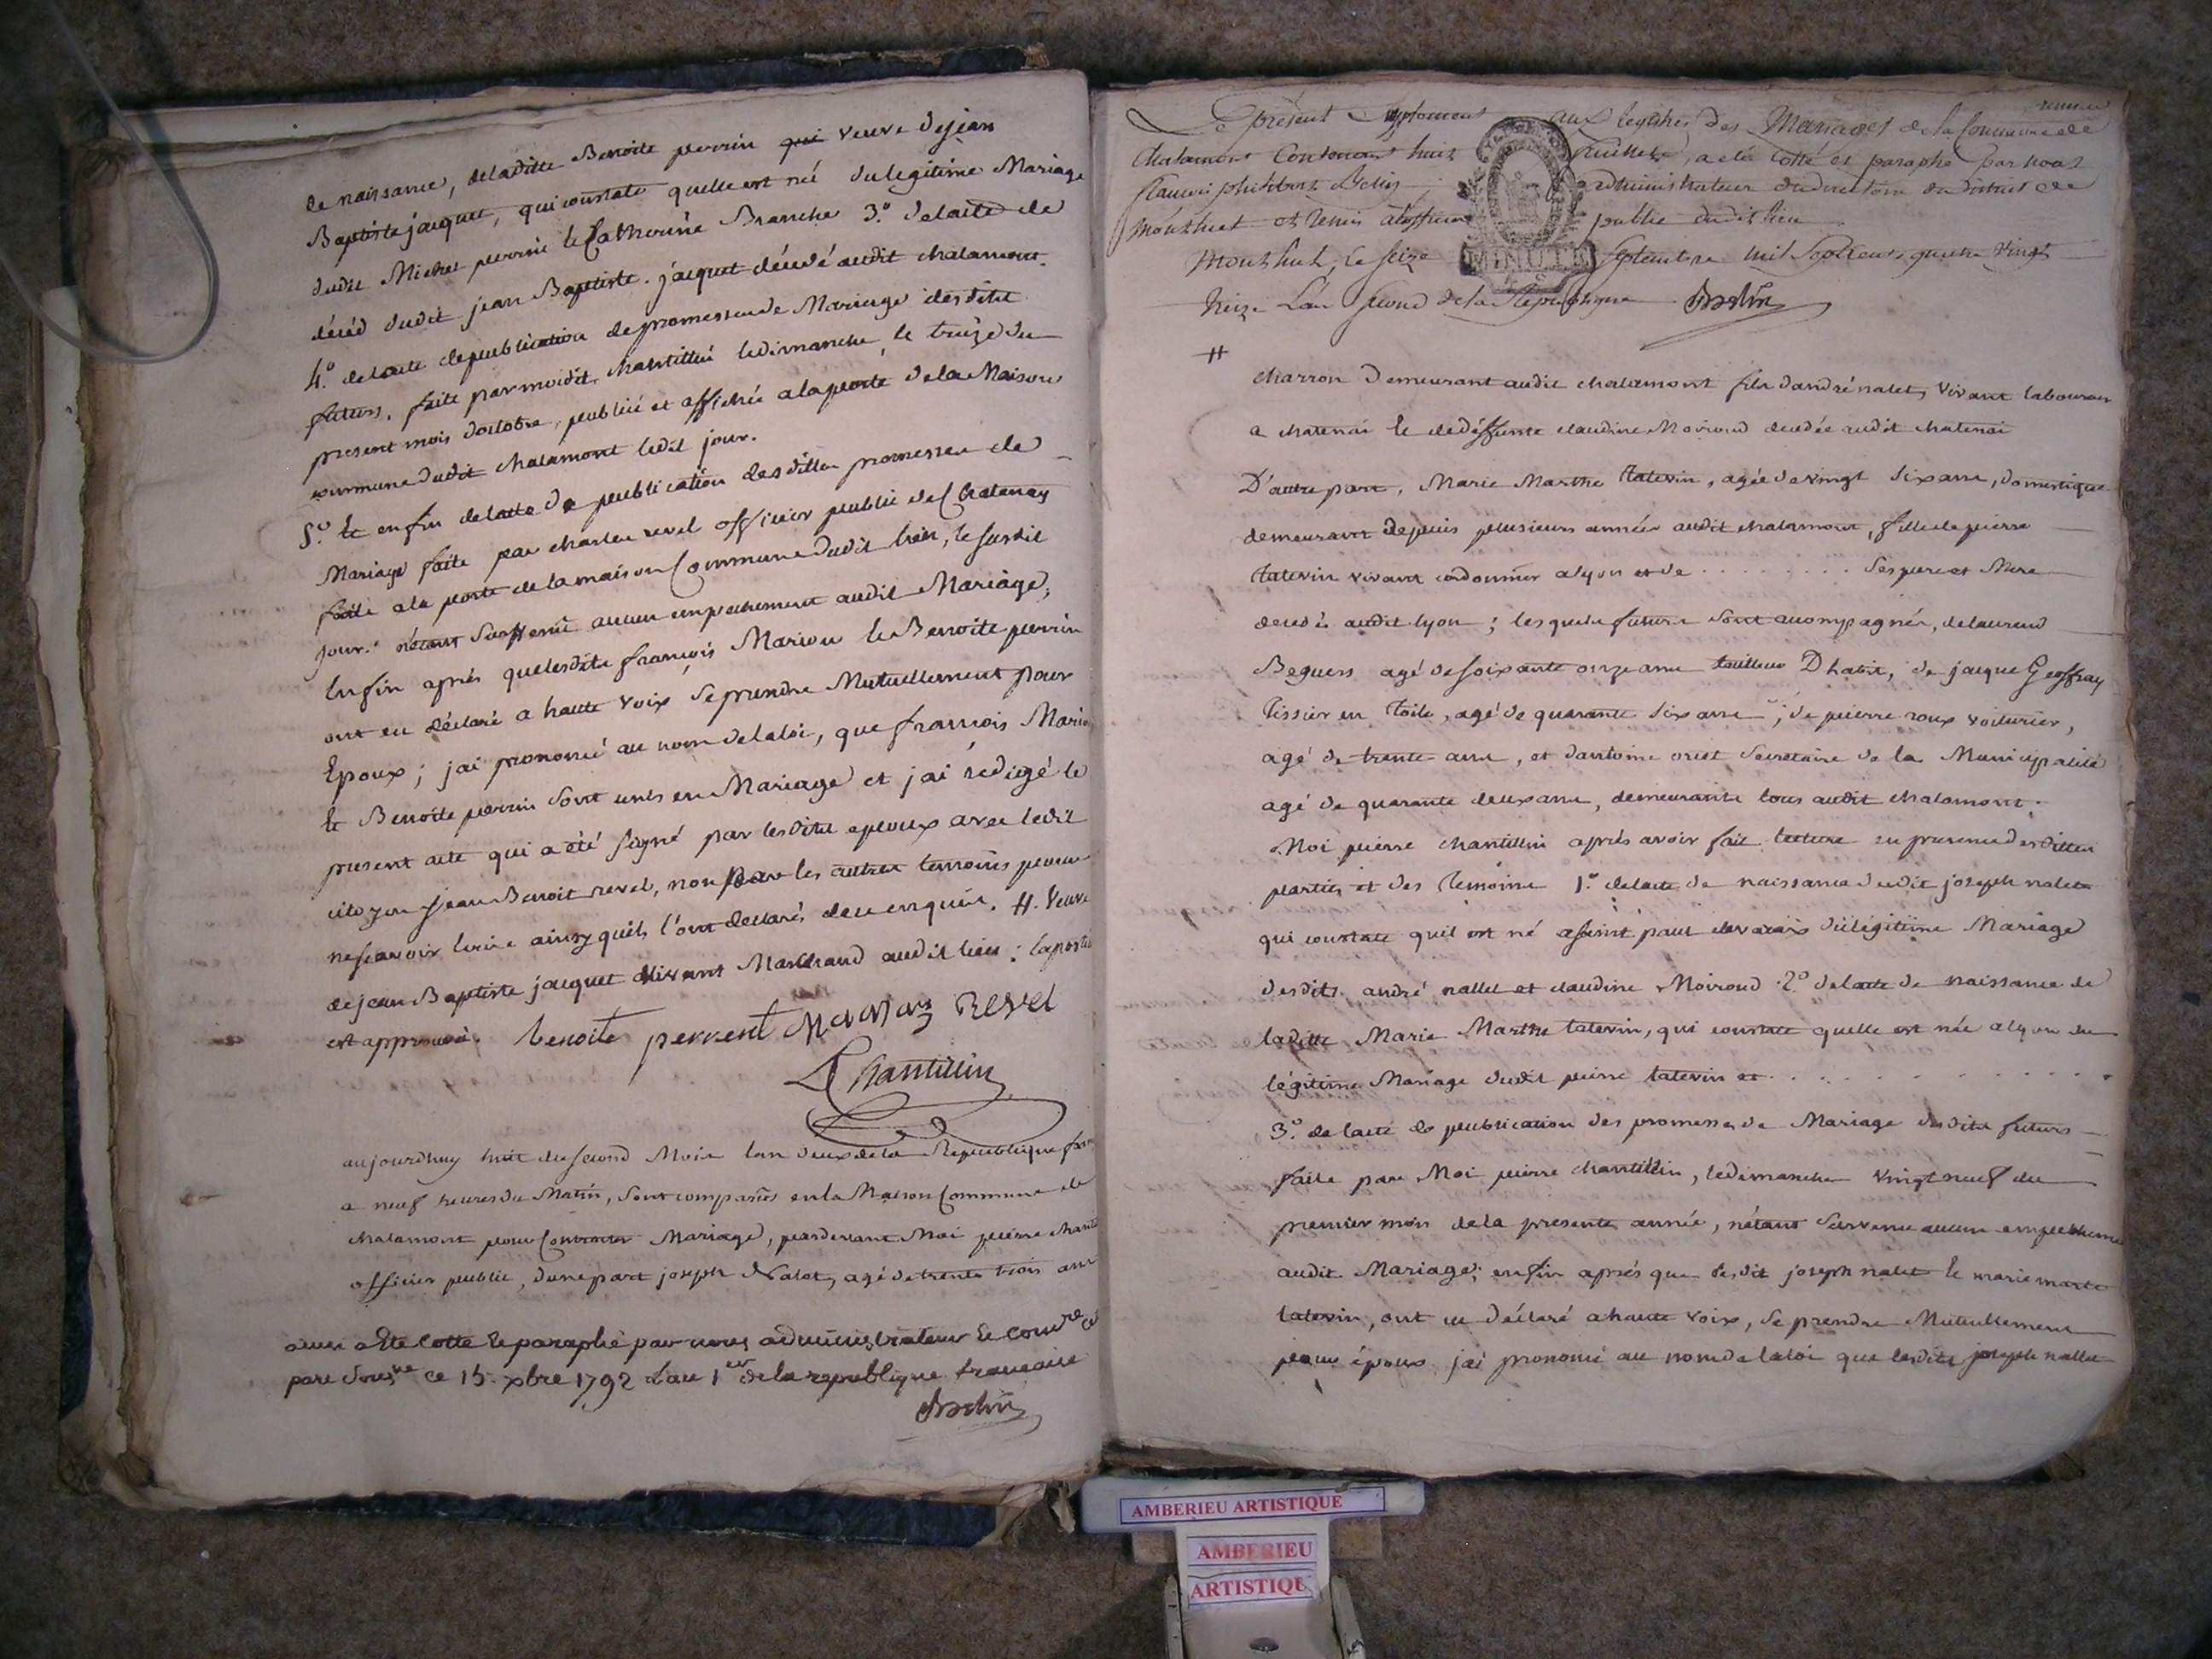 de naissance, deladitte Benoite perrin qui veuve dejean
Baptiste jacquet, qui constate quelle est né du legitime Mariage
dudit Michel perrin et Catherine Branche 3.º delacte de
décéd dudit jean Baptiste jacquet décédé audit chalamont.
4.º delacte depublication depromesse de Mariage desdits
futurs, faite parmoidit chantillin ledimanche le treize du
present mois doctobre, publié et affichée alaporte dela Maison
commune dudit chalamont ledit jour.
5.º Et enfin delacte de publication desdittes promesses de
Mariage faite par charles revel officier public de Chatenay
faite ala porte delamaison Commune dudit lieu, le susdit
jour. nétant survenu aucun empechement audit Mariage,
Enfin aprés quelesdits françois Marion et Benoite perrin
ont eu déclaré a haute voix se prendre Mutuellement pour
Epoux; jai prononcé au nom delaloi, que francois Mario
et Benoite perrin sont unis en Mariage et jai redigé le
present acte qui a été signé par lesdits epoux avec ledit
citoyen jean Benoit revel, non par les autres temoins pour
nesavoir lecrire ainsy quils l'ont declarés dece enquis. H. Veuve
dejean Baptiste jacquet vivant Marchand audit lieu : lapostil
est approuvé. benoite perrent Marion Revel
Chantillin
aujourdhuy huit dusecond Mois lan deux dela Republique fran
a neuf heures du Matin, sont comparus en la Maison Commune de
chalamont pour Contracter Mariage, pardevant Moi pierre chanti
officier public, dune part joseph Nalet, agé de trente trois ans
a été cotté et paraphé par nous administrateur et
ce 15. xbre 1792 Lan 1er dela republique francaise
Belin
premier
Le présent Suplement aux registres des Mariages de la Commune de
chalamont Contenant huit feuillets, a été cotté et paraphé par nous
philibert Belin administrateur du directoire du district de
Montluel et remis a lofficier public dudit lieu
Montluel, le seize Septembre mil Sept cent quatre vingt
treize Lan second de la République Belin
MINUTE
H
charron demeurant audit chalamont fils dandré nalet, vivant laboureur
a chatenai et dedéffunte claudine Moiroud decedée audit chatenai
D'autre part, Marie Marthe tatevin, agée de vingt six ans, domestique
demeurant depuis plusieurs années audit chalamont, fille de pierre
tatevin vivant cordonnier alyon et de . . . . . . . . Ses pere et Mere
decedés audit lyon; lesquels futurs sont acompagnés, delaurend
Beguers agé de soixante onze ans tailleur Dhabit, de jacque Geoffray
tissier en toile, agé de quarante six ans; de pierre roux voiturier,
agé de trente ans, et dantoine orset secretaire de la Municipalité
agé de quarante deux ans, demeurants tous audit chalamont.
Moi pierre chantillin aprés avoir fait lecture en presence desdittes
parties et des temoins 1.º delacte de naissance dudit joseph nalet
qui constate quil est né asaint paul devarax du légitime Mariage
desdits andré nallet et claudine Moiroud 2.º delacte de naissance de
laditte Marie Marthe tatevin, qui constate quelle est née alyon du
légitime Mariage dudit pierre tatevin et . . . . . . . . . . .
3.º de lacte de publication des promesses de Mariage desdits futurs
faite par Moi pierre chantillin, ledimanche vingt neuf du
premier mois dela presente année, nétant survenu aucun empechement
audit Mariage; enfin aprés que lesdit joseph nalet et marie marte
tatevin, ont eu déclaré ahaute voix, se prendre Mutuellement
pour époux jai prononcé au nomdelaloi que lesdits joseph nallet
AMBERIEU ARTISTIQUE
AMBERIEU
ARTISTIQUE